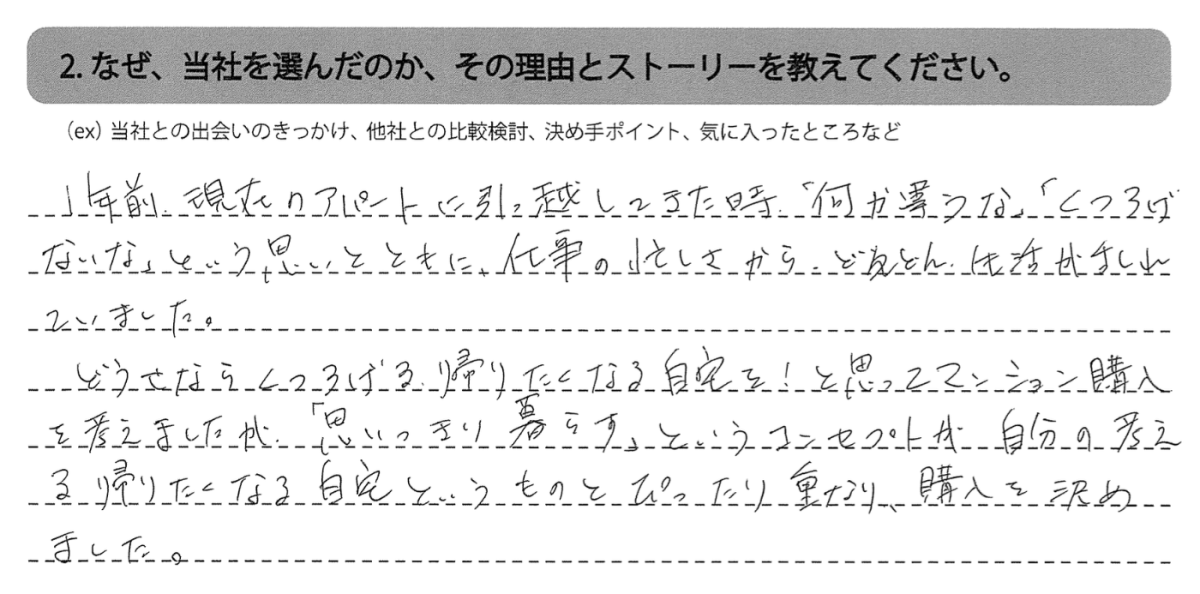 2. なぜ、当社を選んだのか、その理由とストーリーを教えてください。
（ex）当社との出会いのきっかけ、他社との比較検討、決め手ポイント、気に入ったところなど
1年前、現在のアパートに引っ越してきた時、「何か違うな」「くつろば
ないな」という思いとともに、仕事の忙しさから、どんどん、生活が乱れ
ていました。
どうせならくつろげる、帰りたくなる自宅を！と思ってマンション購入
を考えましたが、「思いっきり暮らす」というコンセプトが 自分の考え
る帰りたくなる自宅というものとぴったり重なり、購入を決め
ました。